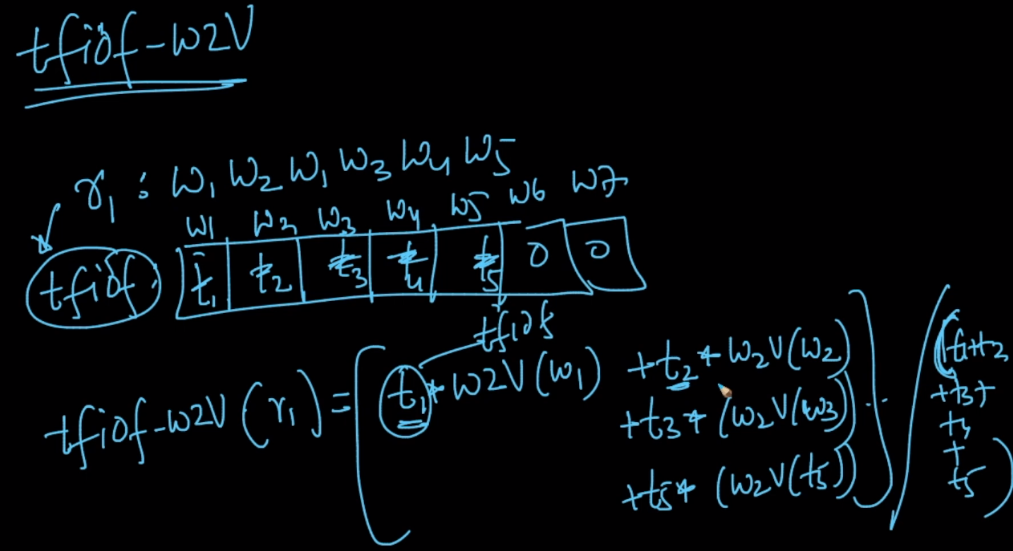 tfidf-w2V
r₁ : w₁ w₂ w₁ w₃ w₄ w₅
w1 w2 w3 w4 w5 w6 w7
tfidf t₁ t₂ t₃ t₄ t₅ 0 0
tfidf
tfidf-w2V (r₁) = [ t₁ * w2V(w₁) + t₂ * w2V(w₂)
+ t₃ * (w2V(w₃))
+ t₅ * (w2V(t₅)) ] .. / (t₁+t₂
+t₃+
t₄
+
t₅)